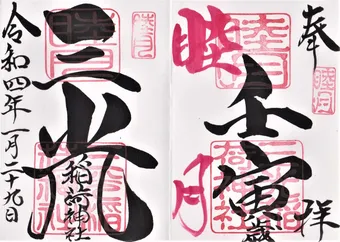 奉拝
睦月
壬寅歳
睦月
三光
稲荷神社
令和四年一月二十九日
睦月